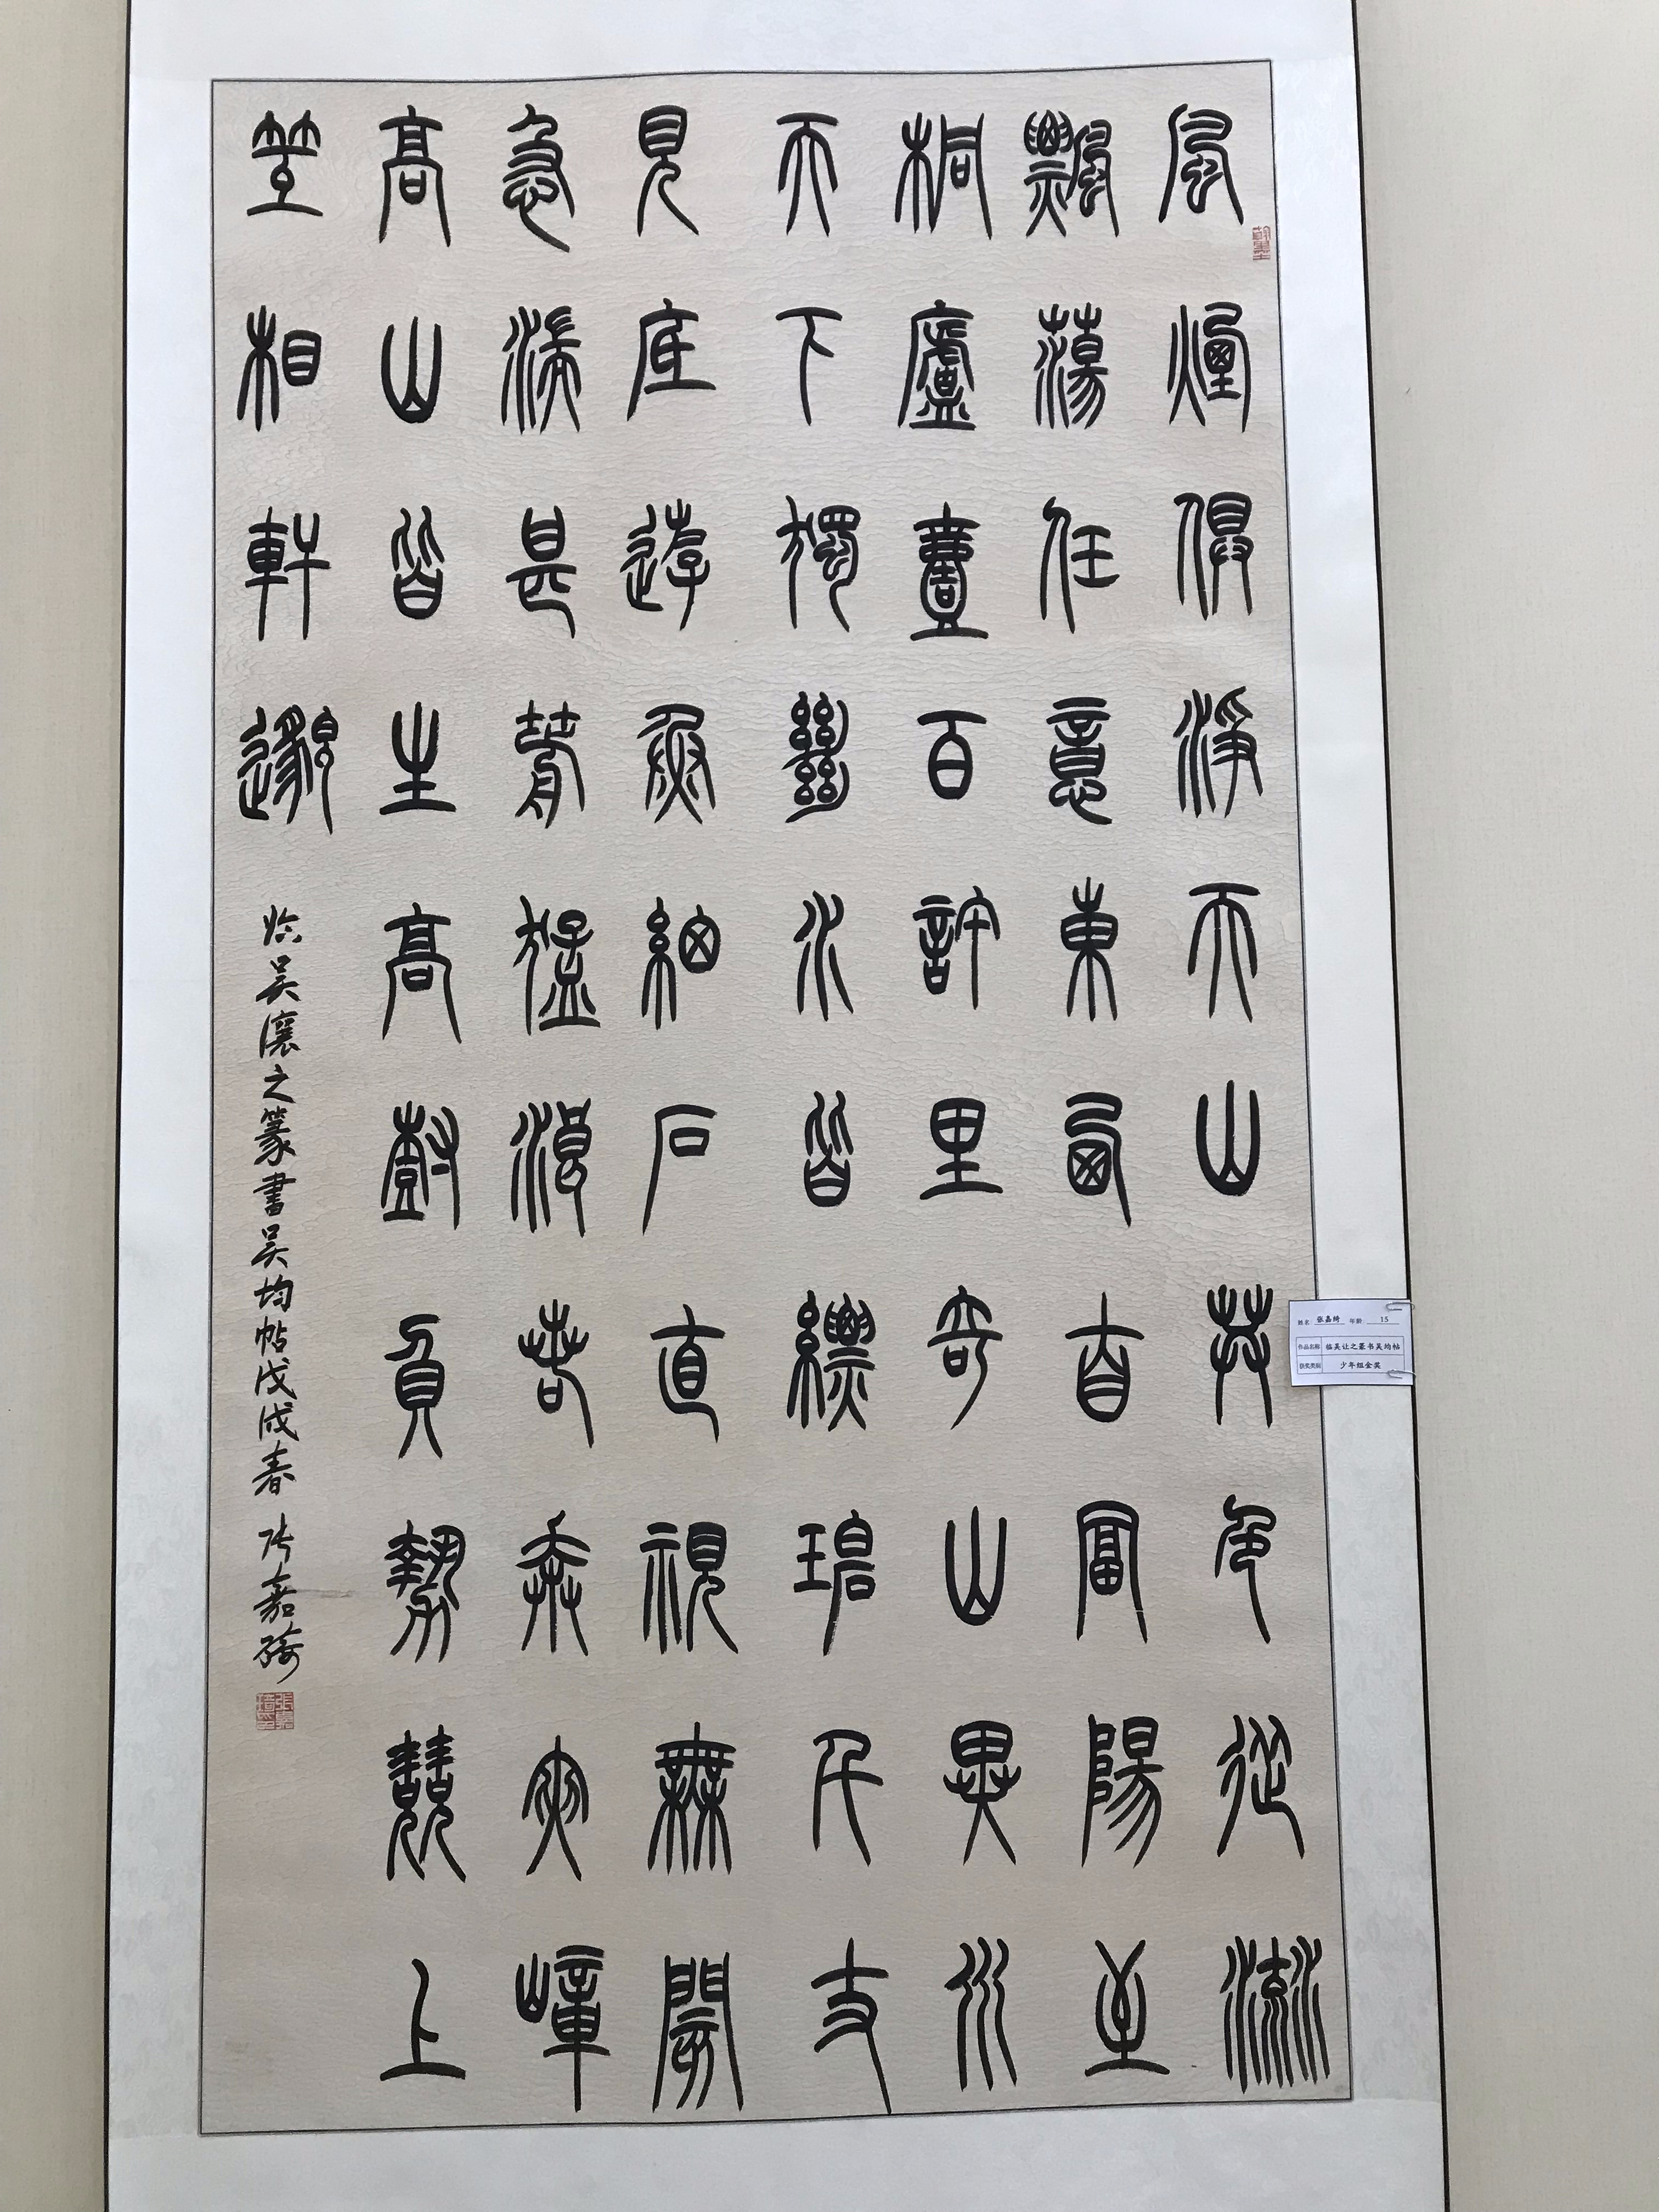 風煙俱淨天山共色從流
飄蕩任意東西自富陽至
桐廬壹百許里奇山異水
天下獨絕水皆縹碧千丈
見底遊魚細石直視無閡
急湍甚箭猛浪若奔夾嶂
高山皆生高樹負勢競上
互相軒邈
临吴讓之篆書吴均帖戊戌春 张嘉绮
姓名 张嘉绮 年龄 15
作品名称 临吴让之篆书吴均帖
获奖类别 少年组金奖